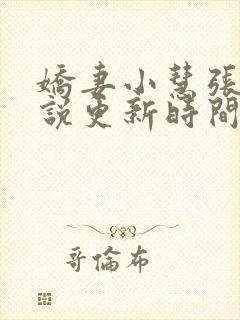 嬌妻小慧張
說更新時間
哥倫布